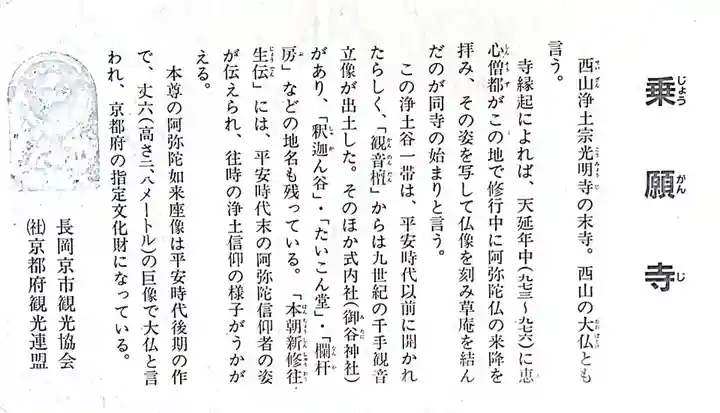 乗願寺
西山浄土宗光明寺の末寺。西山の大仏とも
言う。
寺縁起によれば、天延年中(九七三〜九七六)に恵
心僧都がこの地で修行中に阿弥陀仏の来降を
拝み、その姿を写して仏像を刻み草庵を結ん
だのが同寺の始まりと言う。
この浄土谷一帯は、平安時代以前に開かれ
たらしく、「観音檀」からは九世紀の千手観音
立像が出土した。そのほか式内社(御谷神社)
があり、「釈迦ん谷」・「たいこん堂」・「欄杆
房」などの地名も残っている。「本朝新修往
生伝」には、平安時代末の阿弥陀信仰者の姿
が伝えられ、往時の浄土信仰の様子がうかが
える。
本尊の阿弥陀如来座像は平安時代後期の作
で、丈六(高さ二、八メートル)の巨像で大仏と言
われ、京都府の指定文化財になっている。
長岡京市観光協会
㈳京都府観光連盟